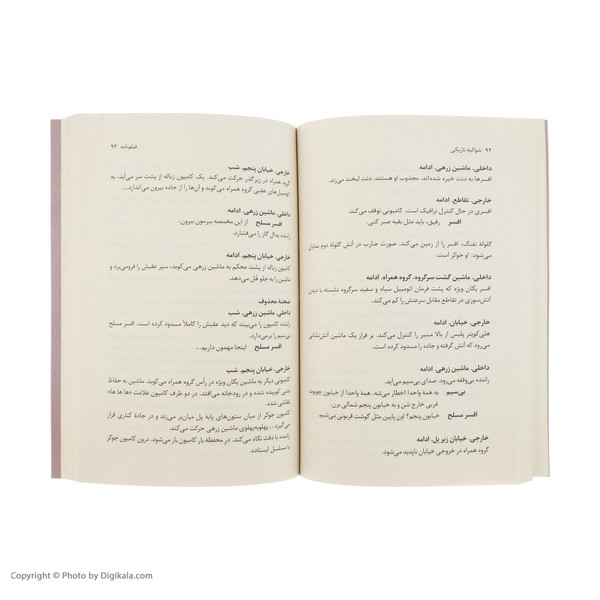 ۹۲ شوالیهٔ تاریکی
داخلی. ماشین زرهی. ادامه
افسرها به دنت خیره شده‌اند. مجذوب او هستند. دنت لبخند می‌زند.
خارجی. تقاطع. ادامه
افسری در حال کنترل ترافیک است. کامیونی توقف می‌کند.
افسر رفیق، باید مثل بقیه صبر کنی.
گلولهٔ تفنگ، افسر را از زمین می‌کند. صورت ضارب در آتش گلولهٔ دوم نمایان
می‌شود: او جوکر است.
داخلی. ماشین گشت سرگروه. گروه همراه. ادامه
افسر یگان ویژه که پشت فرمان اتومبیل سیاه و سفید سرگروه نشسته با دیدن
آتش‌سوزی در تقاطع مقابل سرعتش را کم می‌کند.
خارجی. خیابان. ادامه
هلی‌کوپتر پلیس از بالا مسیر را کنترل می‌کند. بر فراز یک ماشین آتش‌نشانی
می‌رود که آتش گرفته و جاده را مسدود کرده است.
داخلی. ماشین زرهی. ادامه
راننده بی‌وقفه می‌رود. صدای بی‌سیم می‌آید.
بی‌سیم به همهٔ واحدا اخطار می‌شه. همهٔ واحدا از خیابون
غربی خارج شن و به خیابون پنجم شمالی برن.
افسر مسلح خیابون پنجم؟ اون پایین مثل گوشت قربونی می‌شیم.
خارجی. خیابان زیر پل. ادامه
گروه همراه در خروجی خیابان ناپدید می‌شود.
فیلم‌نامه ۹۳
خارجی. خیابان پنجم. شب
گروه همراه در زیرگذر حرکت می‌کند. یک کامیون زباله از پشت سر می‌آید، به
اتومبیل‌های عقبی گروه همراه می‌کوبد و آن‌ها را از جاده بیرون می‌اندازد...
داخلی. ماشین زرهی. ادامه
افسر مسلح از این مخمصه ببرمون بیرون.
راننده پدال گاز را می‌فشارد.
خارجی. خیابان پنجم. ادامه
کامیون زباله از پشت محکم به ماشین زرهی می‌کوبد، سپر عقبش را فرومی‌برد و
ماشین را به جلو هُل می‌دهد.
صحنهٔ محذوف
داخلی. ماشین زرهی. شب
راننده کامیون را می‌بیند که دید عقبش را کاملاً مسدود کرده است. افسر مسلح
بی‌سیم را برمی‌دارد.
افسر مسلح اینجا مهمون داریم...
خارجی. خیابان پنجم. شب
کامیونی دیگر به ماشین یگان ویژه در رأس گروه همراه می‌کوبد. ماشین به حفاظ
بتنی کوبیده شده و در رودخانه می‌افتد. در دو طرف کامیون علامت «ها ها ها»
نقاشی شده.
کامیون جوکر از میان ستون‌های پایهٔ پل میان‌بر می‌زند و در جادهٔ کناری قرار
می‌گیرد... پهلوبه‌پهلوی ماشین زرهی حرکت می‌کند.
راننده با دقت نگاه می‌کند. درِ محفظهٔ بار کامیون باز می‌شود. جوکر
با مسلسل ایستاده.
Copyright © Photo by Digikala.com